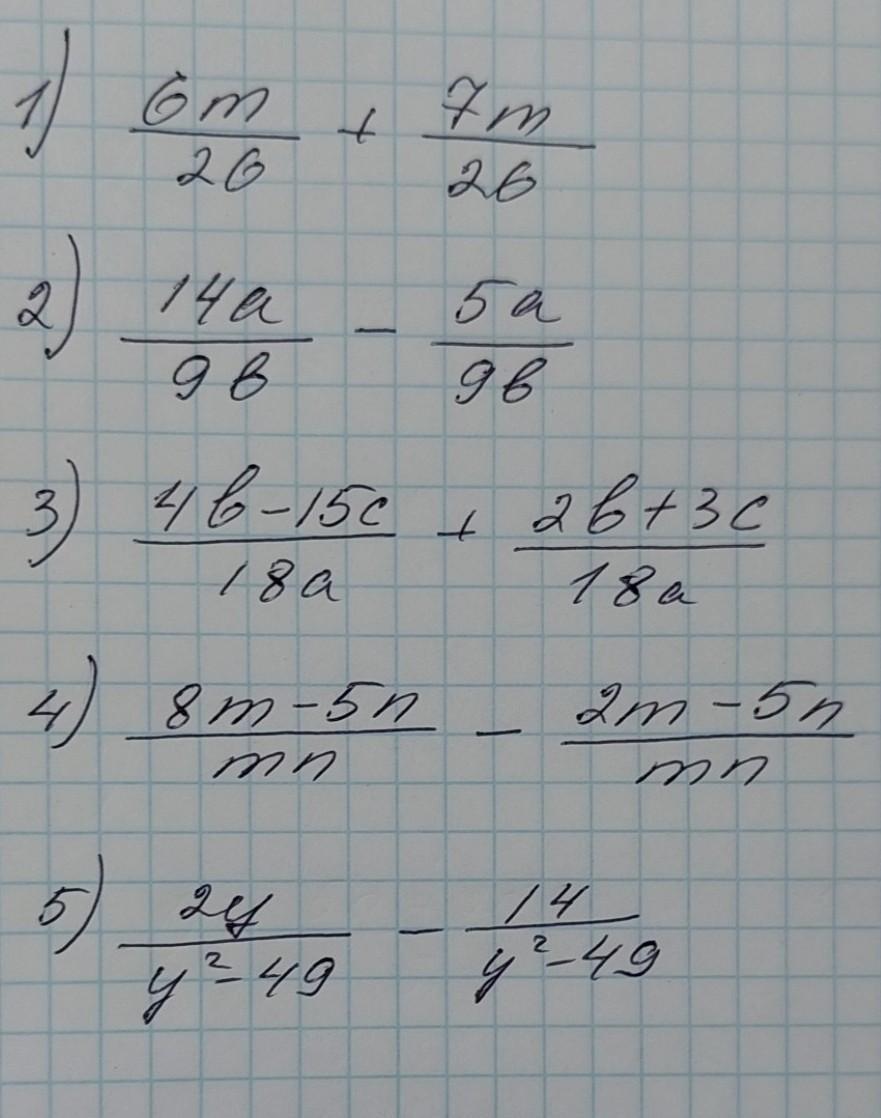 1) 6m/26 + 7m/26
2) 14a/9b − 5a/9b
3) (4b−15c)/18a + (2b+3c)/18a
4) (8m−5n)/mn − (2m−5n)/mn
5) 2y/(y²−49) − 14/(y²−49)